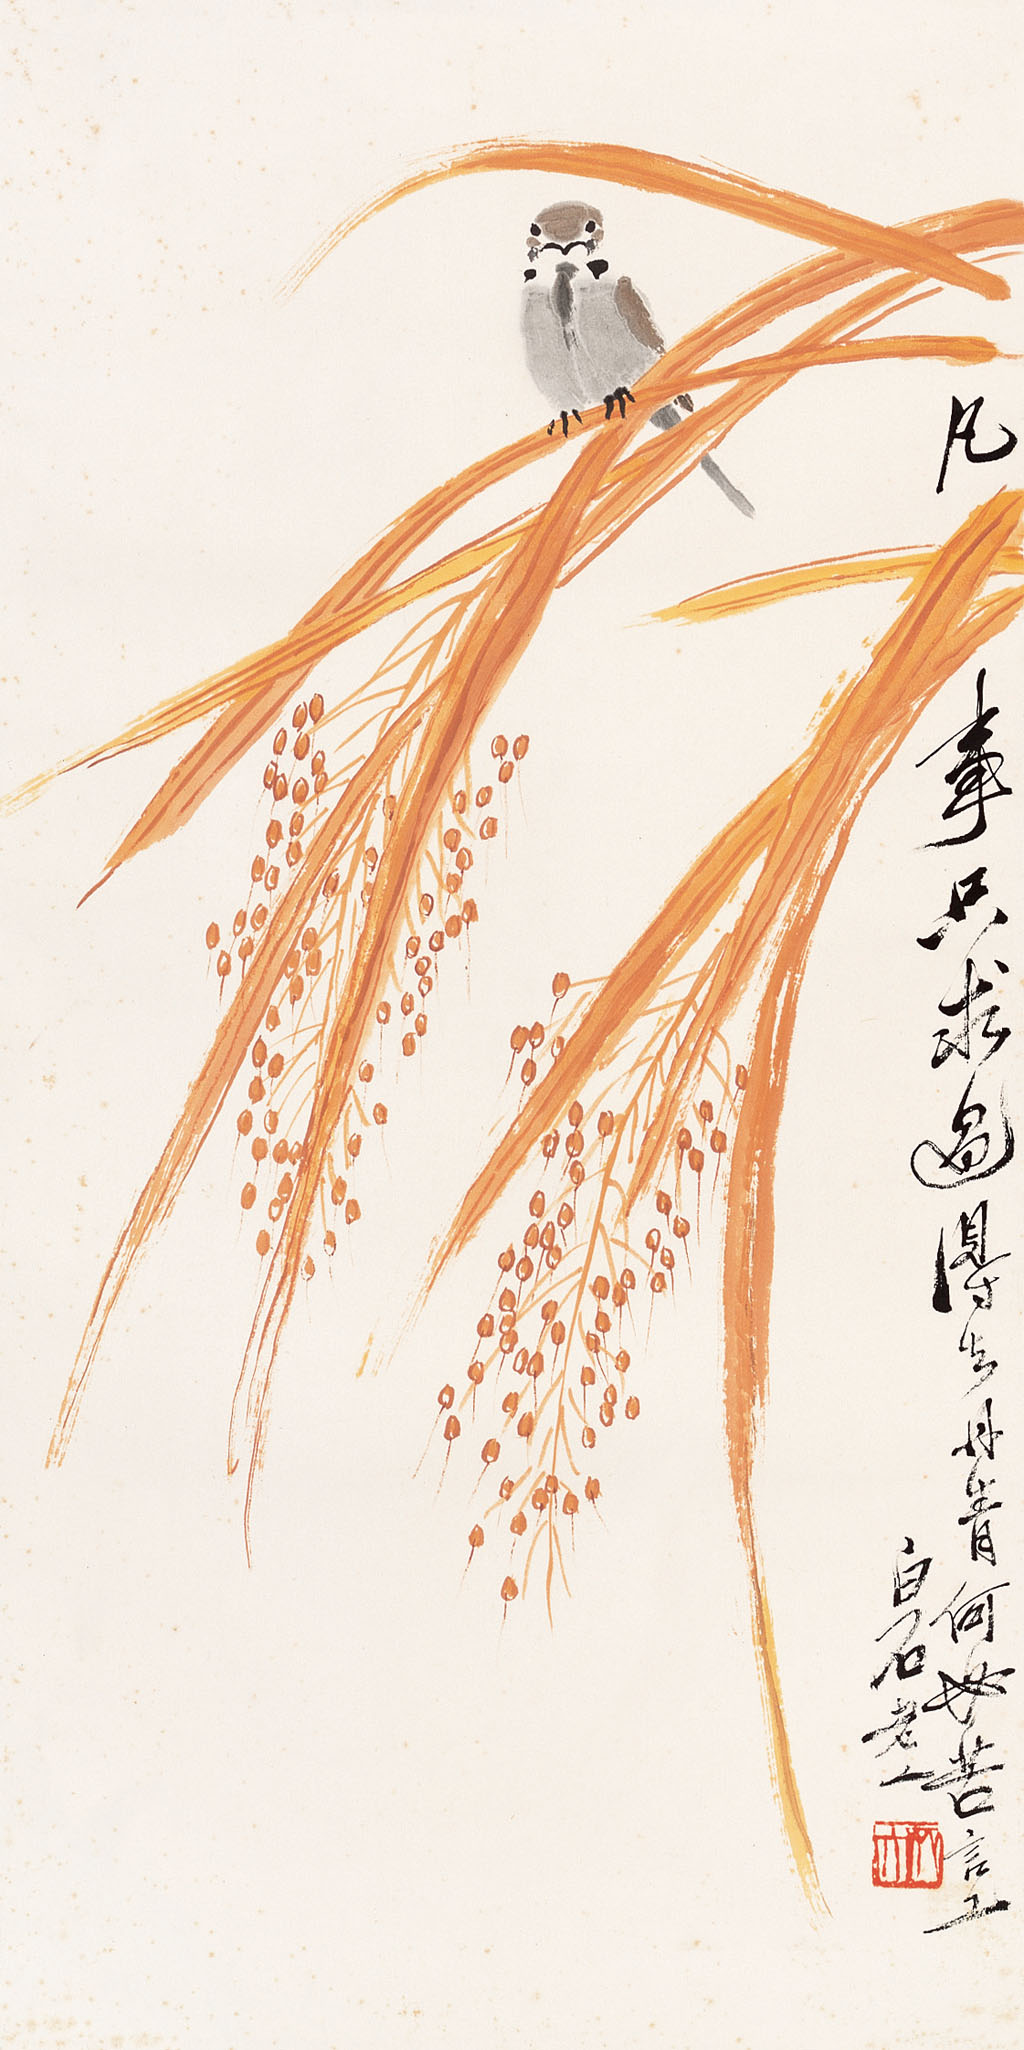 凡事只求過得去丹青何必苦言工
白石老人